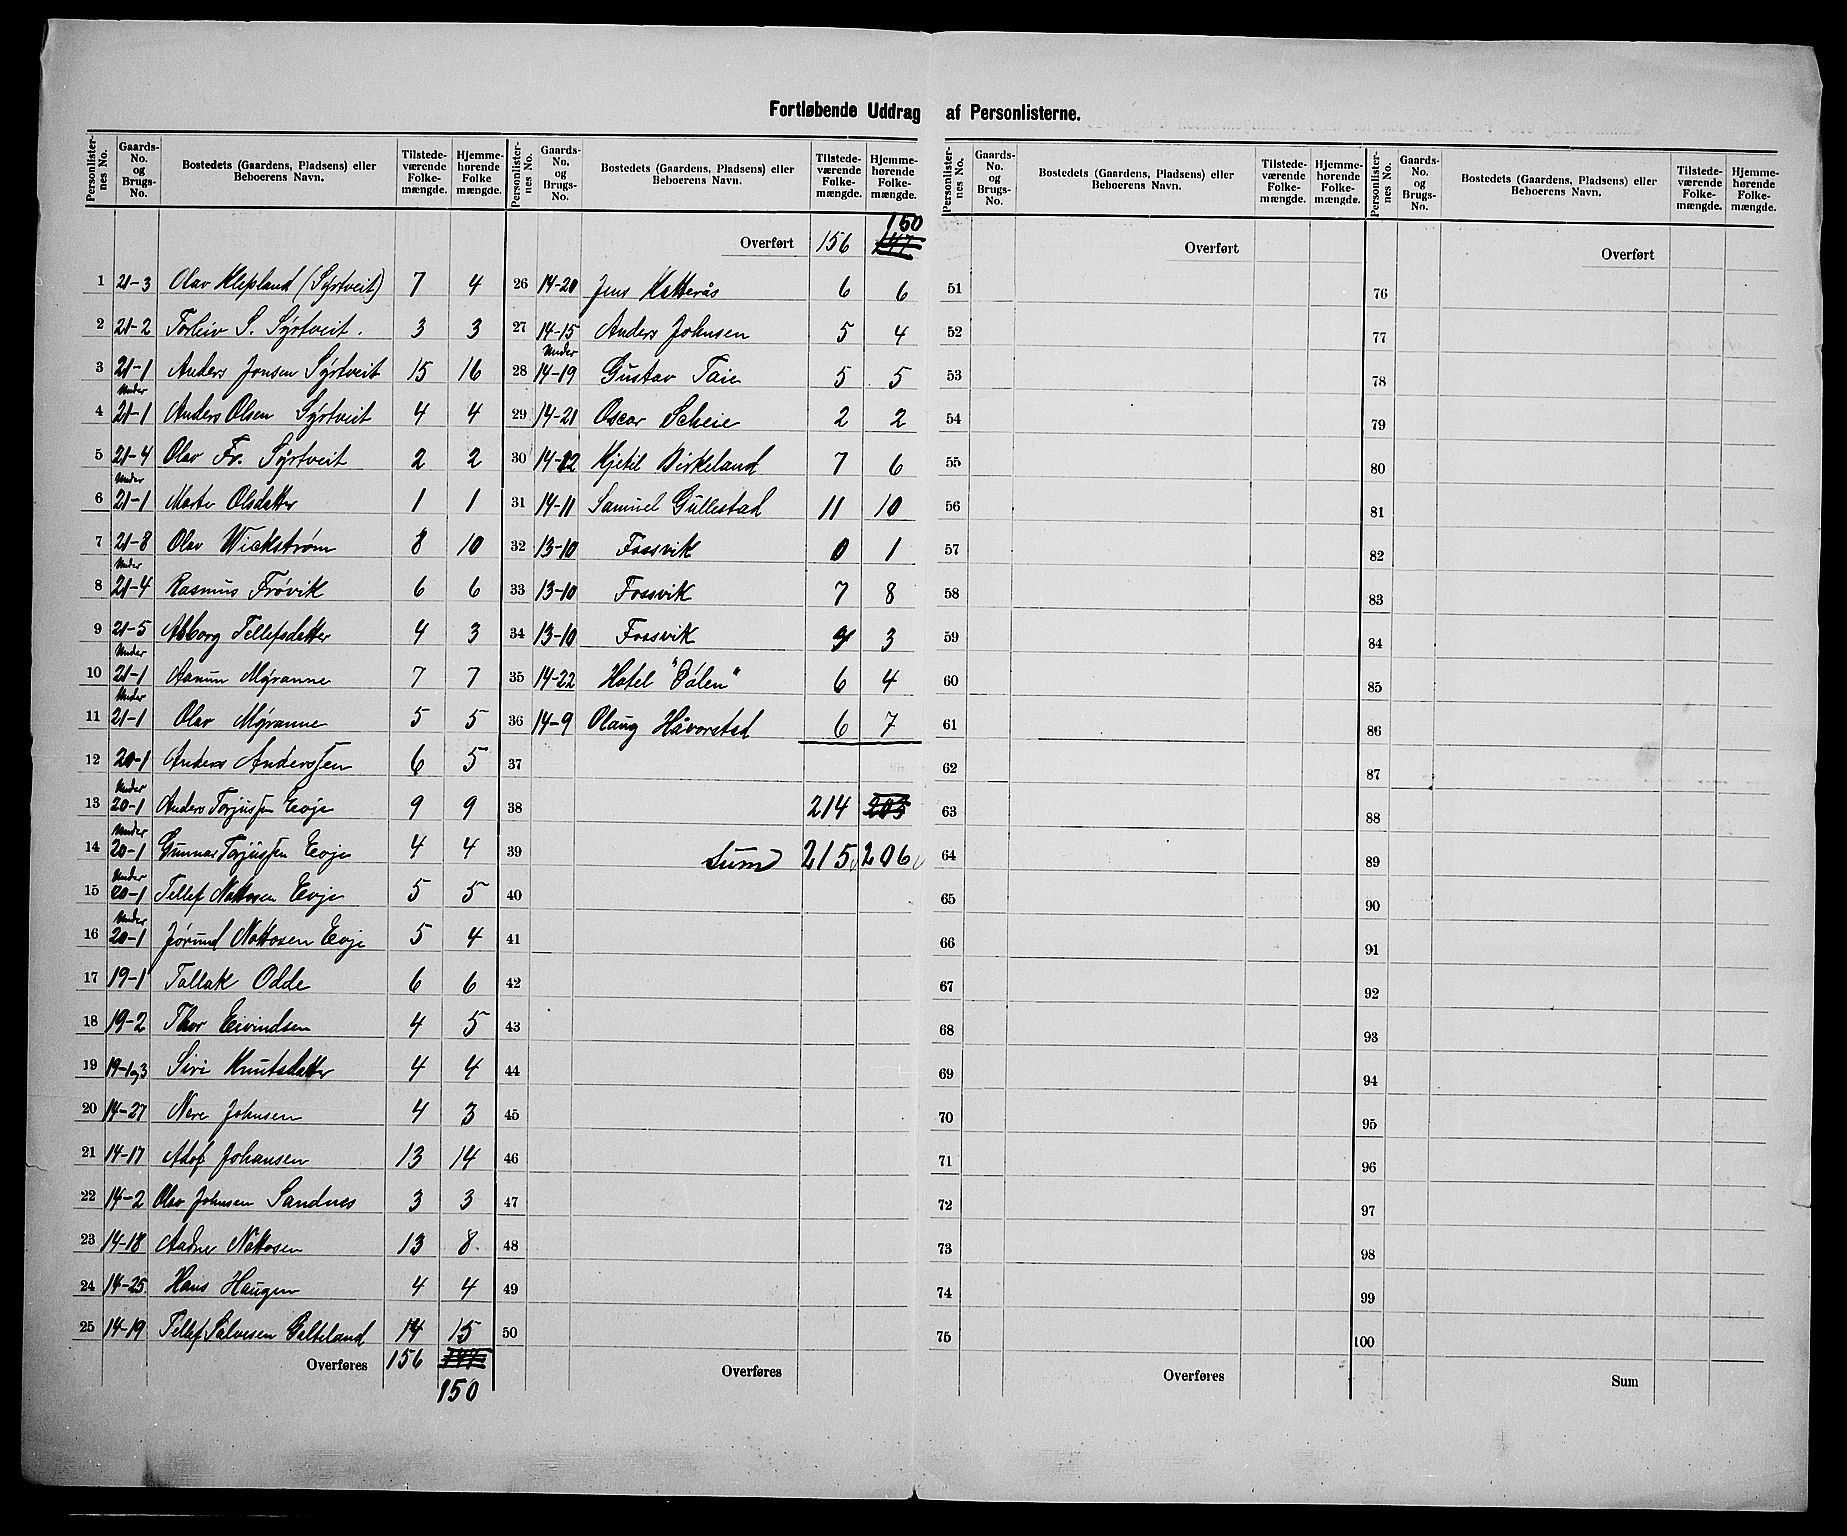 Fortløbende Uddrag af Personlisterne.
Personlister-nes No. Gaards-No. og Brugs-No. Bostedets (Gaardens, Pladsens) eller Beboerens Navn. Tilstede-værende Folke-mængde. Hjemme-hørende Folke mængde.
1 21-3 Olav Klepland (Syrtveit) 7 4
2 21-2 Torleiv S. Syrtveit. 3 3
3 21-1 Anders Jonsen Syrtveit 15 16
4 Under 21-1 Anders Olsen Syrtveit 4 4
5 21-4 Olav Fr. Syrtveit 2 2
6 Under 21-1 Marte Olsdatter 1 1
7 21-8 Olav Wickstrøm 8 10
8 Under 21-4 Rasmus Frøvik 6 6
9 21-5 Asborg Tellefsdatter 4 3
10 Under 21-1 Aanun Myranne 7 7
11 Under 21-1 Olav Myranne 5 5
12 20-1 Anders Anderssen 6 5
13 Under 20-1 Anders Torjussen Evje 9 9
14 Under 20-1 Gunnar Torjussen Evje 4 4
15 Under 20-1 Tellef Nottosen Evje 5 5
16 Under 20-1 Jørund Nottosen Evje 5 4
17 19-1 Tallak Odde 6 6
18 19-2 Thor Eivindsen 4 5
19 19-1og3 Siri Knutsdatter 4 4
20 14-27 Nere Johnsen 4 3
21 14-17 Adof Johansen 13 14
22 14-2 Olav Johnsen Sandnes 3 3
23 14-18 Aadne Nottosen 13 8
24 14-25 Hans Haugen 4 4
25 14-19 Tellef Salvesen Galteland 14 15
Overføres 156 147
150
Personlister-nes No. Gaards-No. og Brugs-No. Bostedets (Gaardens, Pladsens) eller Beboerens Navn. Tilstede-værende Folke-mængde. Hjemme-hørende Folke-mængde.
150
Overført 156 147
26 14-20 Jens Hatterås 6 6
27 14-15 Anders Johnsen 5 4
28 Under 14-19 Gustav Taie 5 5
29 14-21 Oscar Scheie 2 2
30 14-12 Kjetil Birkeland 7 6
31 14-11 Samuel Gullestad 11 10
32 13-10 Fossvik 0 1
33 13-10 Fossvik 7 8
34 13-10 Fossvik 3
35 14-22 Hotel "Dølen" 6 4
36 14-9 Olaug Håvorstad 6 7
37
38 214 203
39 Sum 215 206
40
41
42
43
44
45
46
47
48
49
50
Overføres
Personlister-nes No. Gaards-No. og Brugs-No. Bostedets (Gaardens, Pladsens) eller Beboerens Navn. Tilstede-værende Folke-mængde. Hjemme-hørende Folke-mængde.
Overført
51
52
53
54
55
56
57
58
59
60
61
62
63
64
65
66
67
68
69
70
71
72
73
74
75
Overføres
Personlister-nes No. Gaards-No. og Brugs-No. Bostedets (Gaardens, Pladsens) eller Beboerens Navn. Tilstede-værende Folke-mængde. Hjemme-hørende Folke-mængde.
Overført
76
77
78
79
80
81
82
83
84
85
86
87
88
89
90
91
92
93
94
95
96
97
98
99
100
Sum